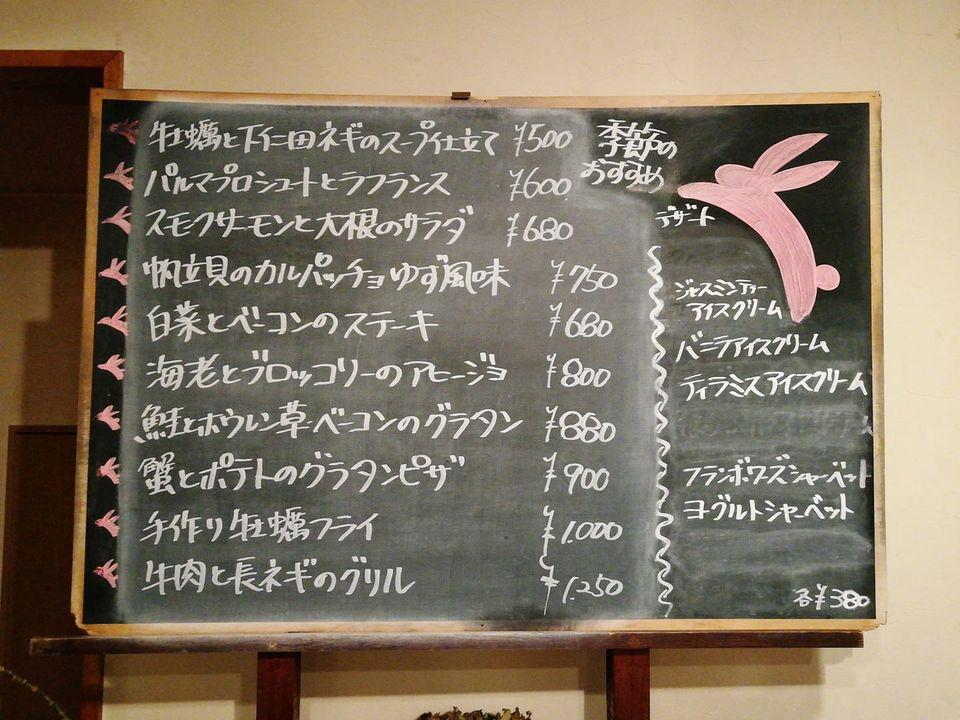 牡蠣と下仁田ネギのスープ仕立て ¥500
パルマプロシュートとラフランス ¥600
スモークサーモンと大根のサラダ ¥680
帆立貝のカルパッチョゆず風味 ¥750
白菜とベーコンのステーキ ¥680
海老とブロッコリーのアヒージョ ¥800
鮭とホウレン草・ベーコンのグラタン ¥880
蟹とポテトのグラタンピザ ¥900
手作り牡蠣フライ ¥1.000
牛肉と長ネギのグリル ¥1.250
季節の
おすすめ
デザート
ジャスミンティー
アイスクリーム
バニラアイスクリーム
ティラミスアイスクリーム
フランボワーズシャーベット
ヨーグルトシャーベット
各¥380